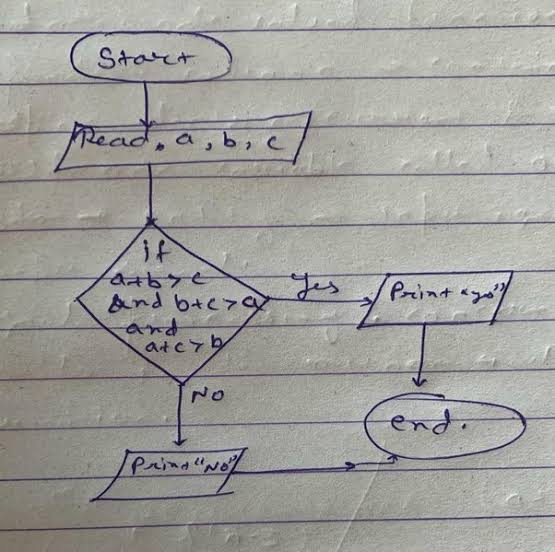 Start
Read, a, b, c
if
a+b>c
and b+c>a
and
a+c>b
Yes
Print "yes"
No
end.
Print "No"